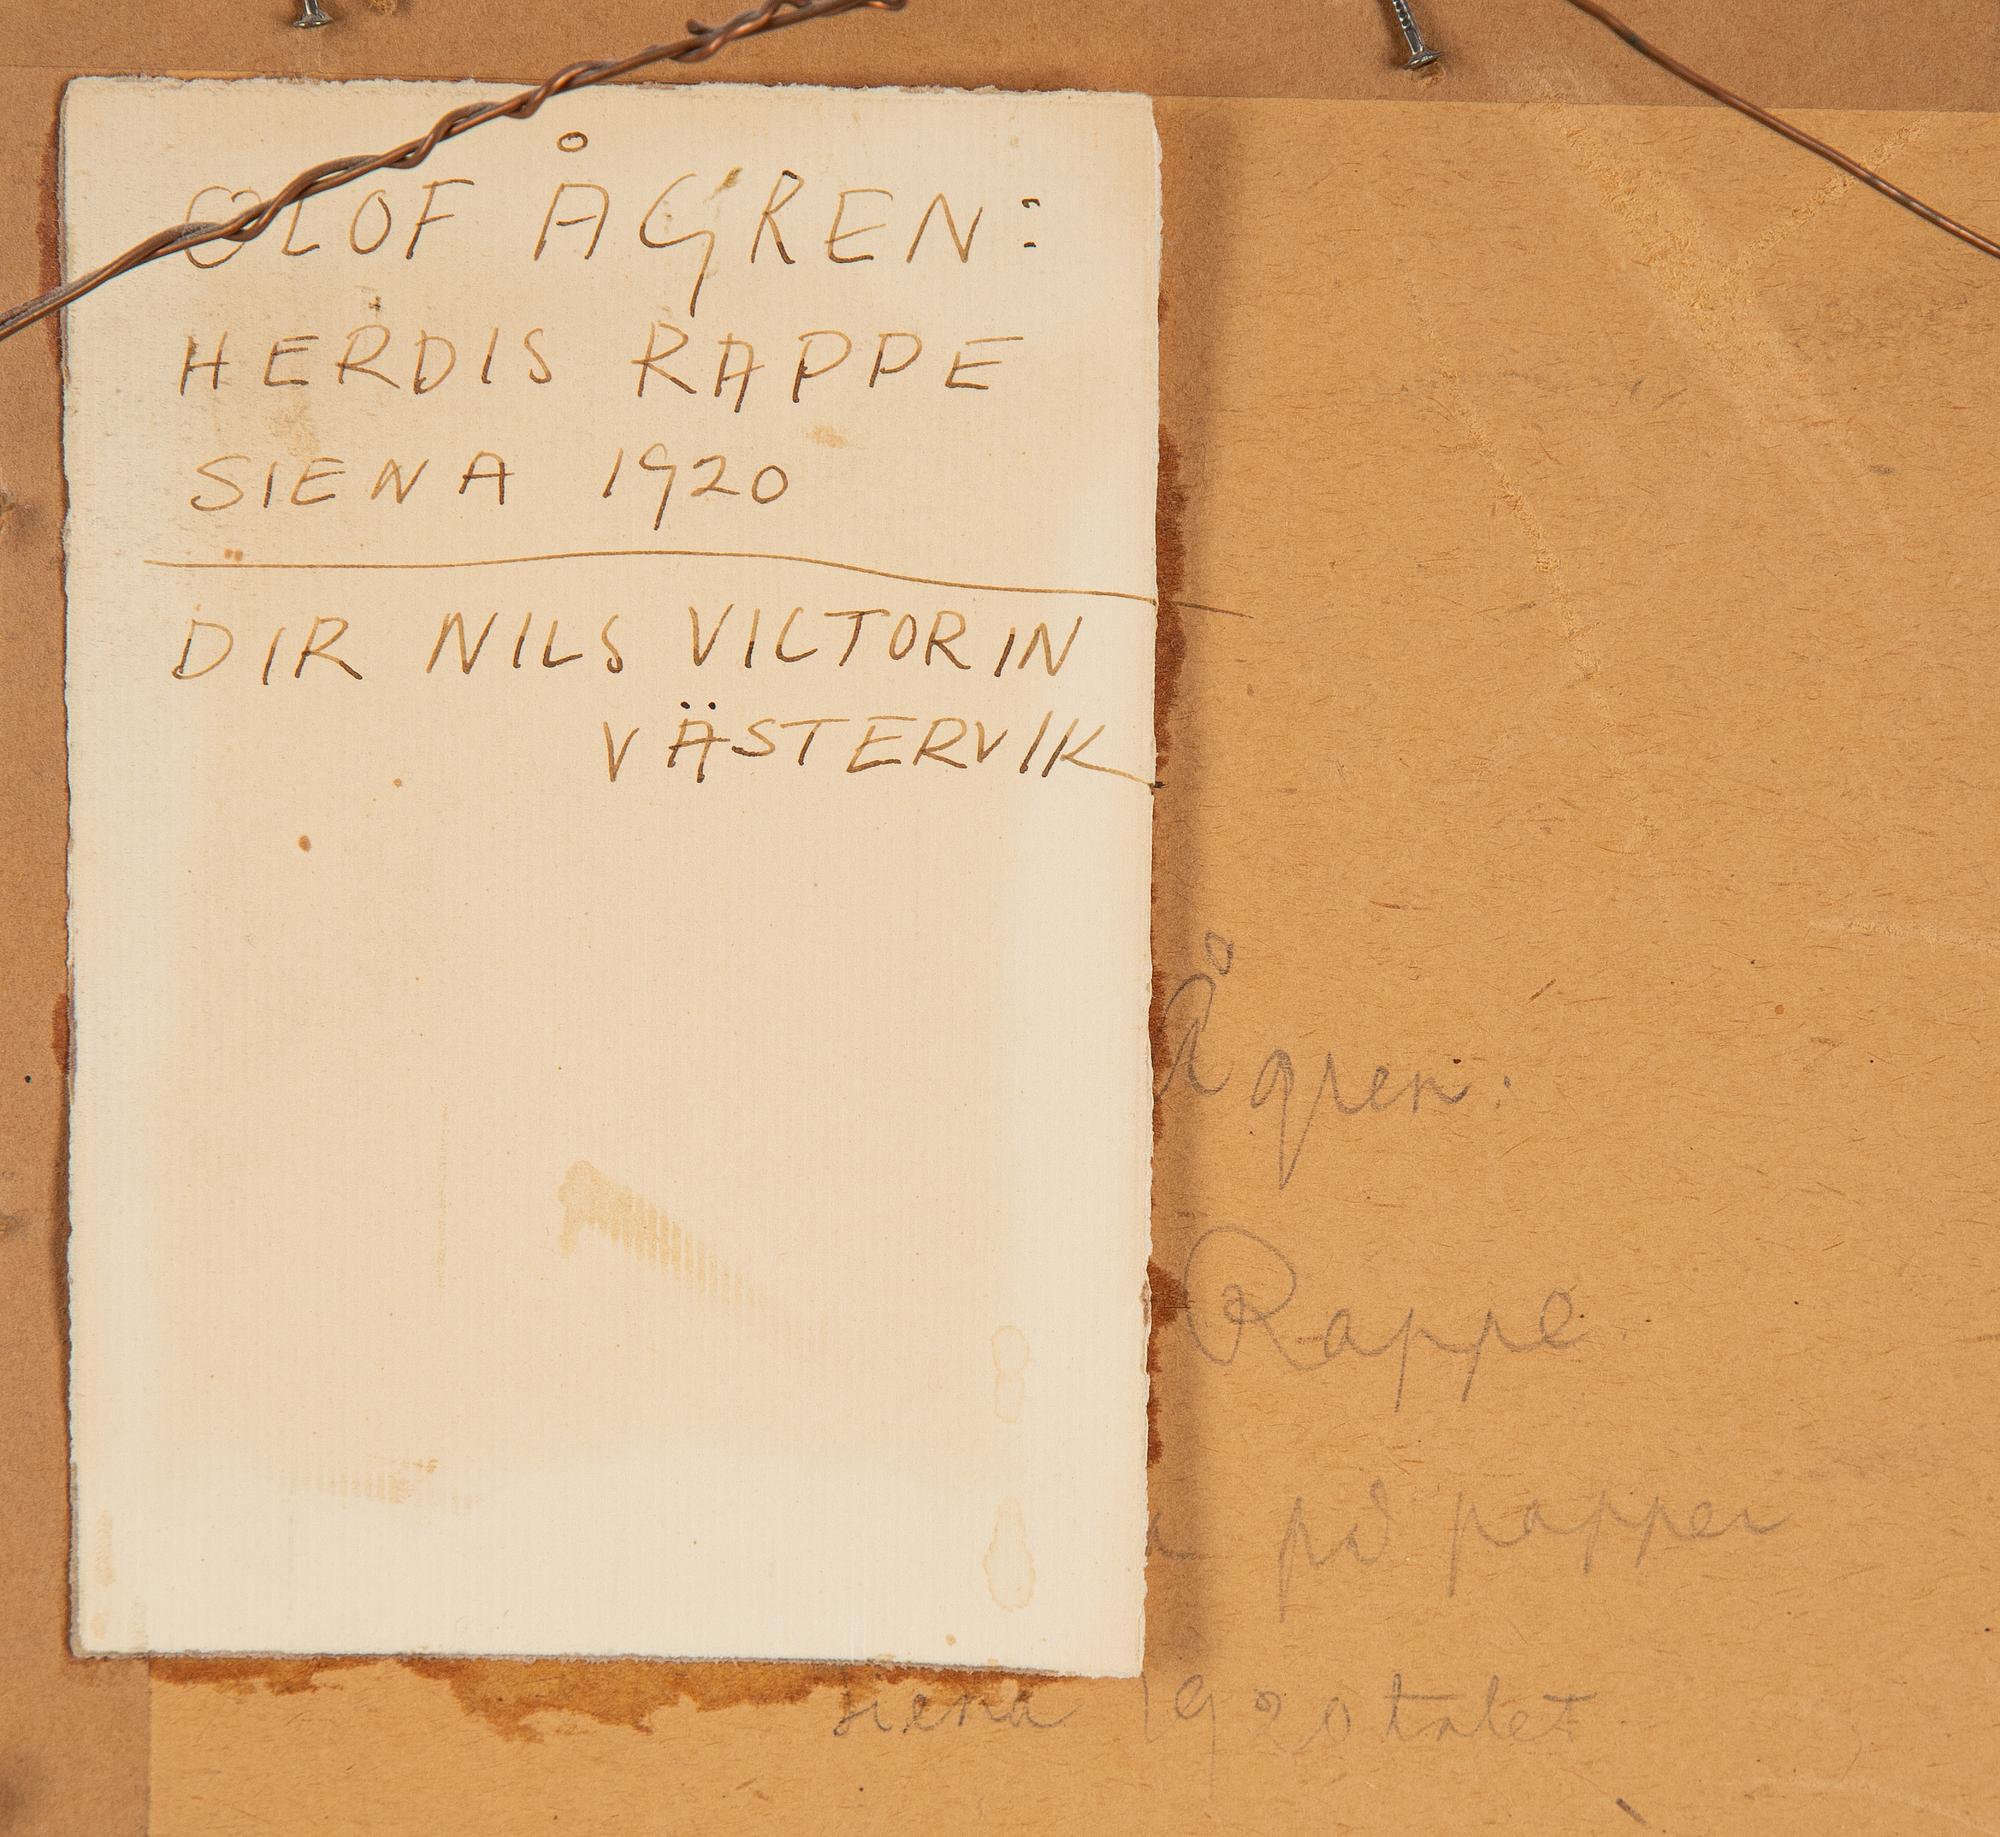 OLOF ÅGREN:
HERDIS RAPPE
SIENA 1920
DIR NILS VICTORIN
VÄSTERVIK
Ågren:
Rappe
på papper
Siena 1920talet